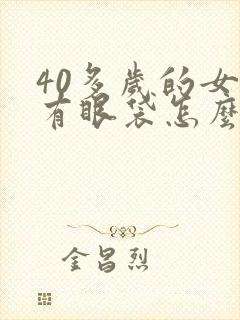 40多岁的女
有眼袋怎麼
金昌烈